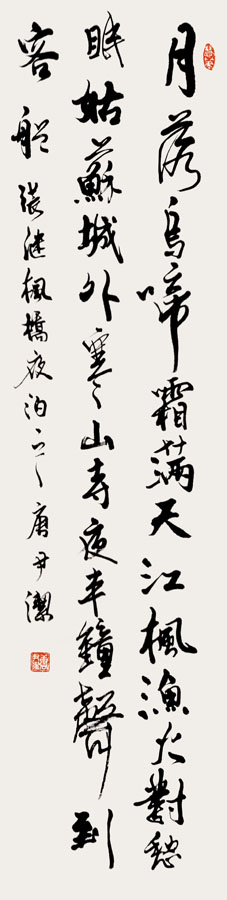 月落烏啼霜滿天江楓漁火對愁
眠姑蘇城外寒山寺夜半鐘聲到
客船 張繼楓橋夜泊 唐尹潔